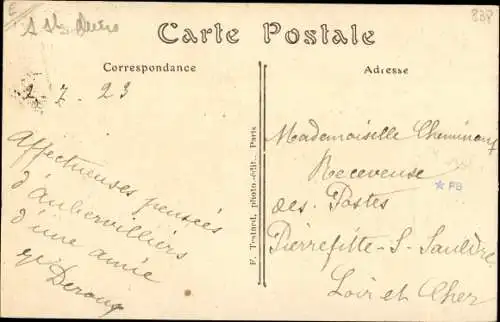 838
Carte Postale
Correspondance
Adresse
2.7.23
Affectueuses pensées
d'Aubervilliers
d'une amie
F. Testard, photo-édit., Paris
Mademoiselle
Receveuse
des Postes
★PB
Pierrefitte-S-Sauldre
Loir et Cher